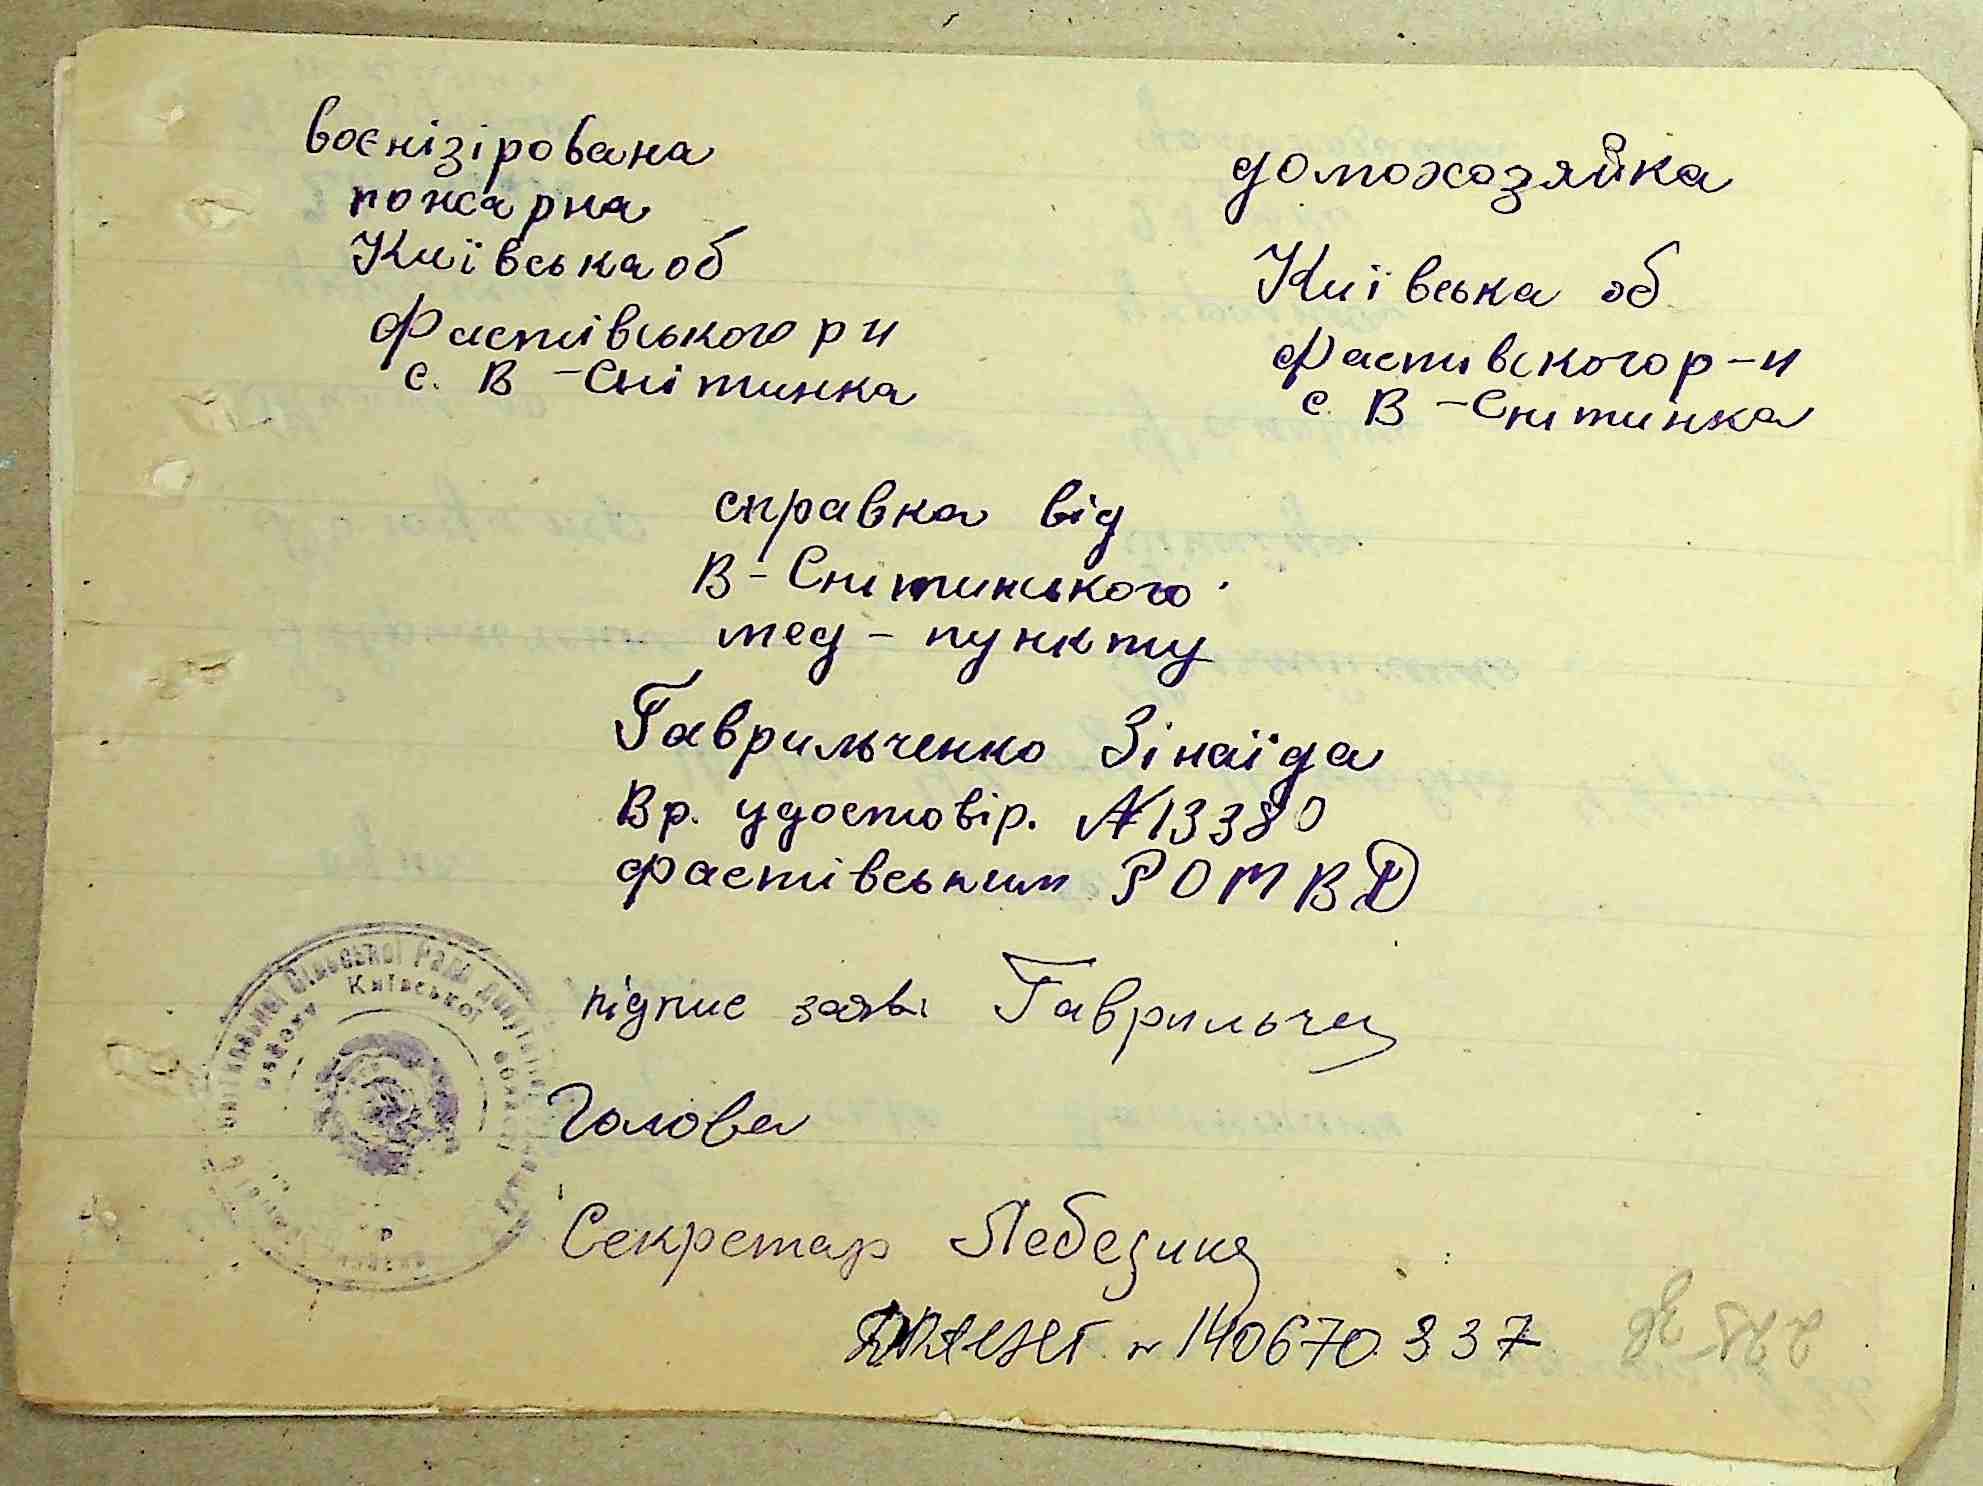 воєнізірована
пожарна
Київська об
Фастівського р н
с. В-Снітинка
домохозяйка
Київська об
Фастівского р-н
с. В-Снітинка
справка від
В-Снітинського
мед-пункту
Гаврильченко Зінаїда
Вр. удостовір. №13380
Фастівським РОМВД
підпис заяві Гаврильч
Голова
Секретар
№ 140670 337
Сільської Ради
Київської